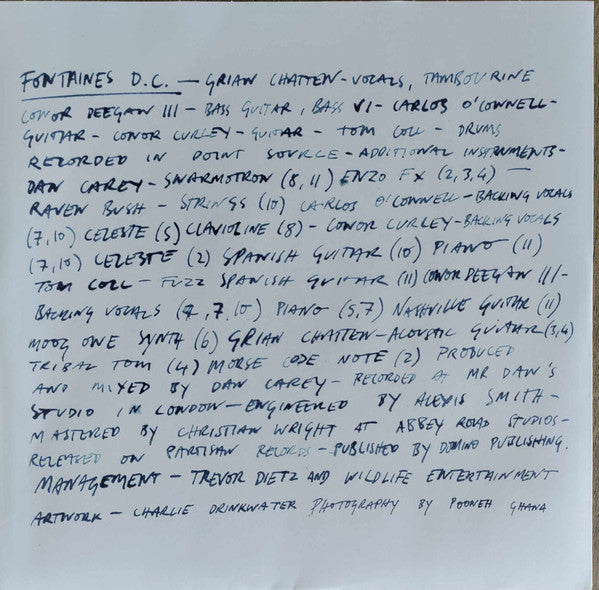 FONTAINES D.C. — GRIAN CHATTEN - VOCALS, TAMBOURINE
CONOR DEEGAN III - BASS GUITAR, BASS VI - CARLOS O'CONNELL -
GUITAR - CONOR CURLEY - GUITAR - TOM COLL - DRUMS
RECORDED IN POINT SOURCE - ADDITIONAL INSTRUMENTS -
DAN CAREY - SWARMOTRON (8,11) ENZO FX (2,3,4) —
RAVEN BUSH - STRINGS (10) CARLOS O'CONNELL - BACKING VOCALS
(7,10) CELESTE (5) CLAVIOLINE (8) - CONOR CURLEY - BACKING VOCALS
(7,10) CELESTE (2) SPANISH GUITAR (10) PIANO (11)
TOM COLL - FUZZ SPANISH GUITAR (11) CONOR DEEGAN III -
BACKING VOCALS (2,7,10) PIANO (5,7) NASHVILLE GUITAR (11)
MOOG ONE SYNTH (6) GRIAN CHATTEN - ACOUSTIC GUITAR (3,4)
TRIBAL TOM (4) MORSE CODE NOTE (2) PRODUCED
AND MIXED BY DAN CAREY - RECORDED AT MR DAN'S
STUDIO IN LONDON - ENGINEERED BY ALEXIS SMITH -
MASTERED BY CHRISTIAN WRIGHT AT ABBEY ROAD STUDIOS -
RELEASED ON PARTISAN RECORDS - PUBLISHED BY DOMINO PUBLISHING.
MANAGEMENT - TREVOR DIETZ AND WILDLIFE ENTERTAINMENT
ARTWORK - CHARLIE DRINKWATER PHOTOGRAPHY BY POONEH GHANA